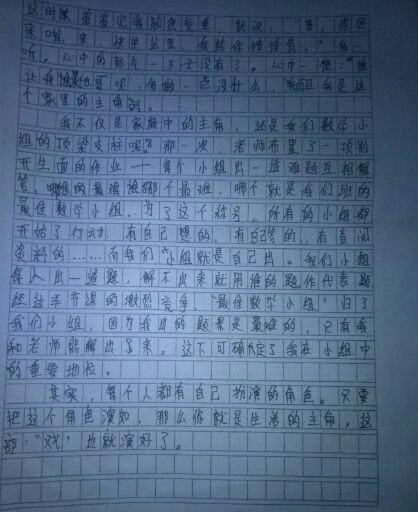 这时候 爸爸见我脸色变重，就说："哥，你回
来啦，来，快坐这里，我给你捶捶背。"我一
听，心中的怒气一下子没有了。心中一想："谁
让我是主角呢，多做一点没什么，而且我是这
个家里的主角呢。
我不仅是家庭中的主角，还是我们数学小
组的顶梁支柱呢。那一次，老师布置了一项别
开生面的作业——每个小组出一道难题互相解
答，哪组的最难，哪个就是我们班的
最佳数学小组。为了这个称号，所有的小组都
开始了行动，有自己想的，有自己答的，有查阅
资料的……而我们小组就是自己出。我们小组
每人出一道题，解不出来就用谁的题作代表题
经过半节课的激烈竞争，"最佳数学小组"归了
我们小组，因为我出的题果是最难的，只有我
和老师能解出了来。这下可确定了我在小组中
的重要地位。
其实，每个人都有自己扮演的角色。只要
把这个角色演好，那么你就是生活的主角，这
部"戏"也就演好了。